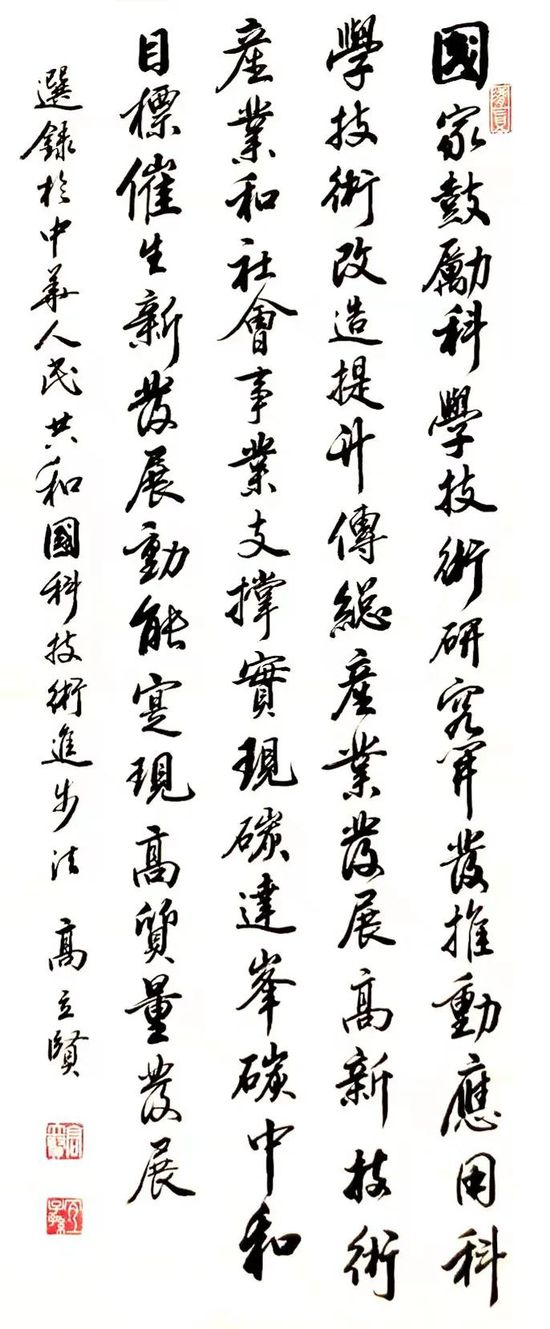 國家鼓勵科學技術研究開發推動應用科
學技術改造提升傳總產業發展高新技術
產業和社會事業支撐實現碳達峯碳中和
目標催生新發展動能寔現高質量發展
選錄於中華人民共和國科技術進步法 高立賢